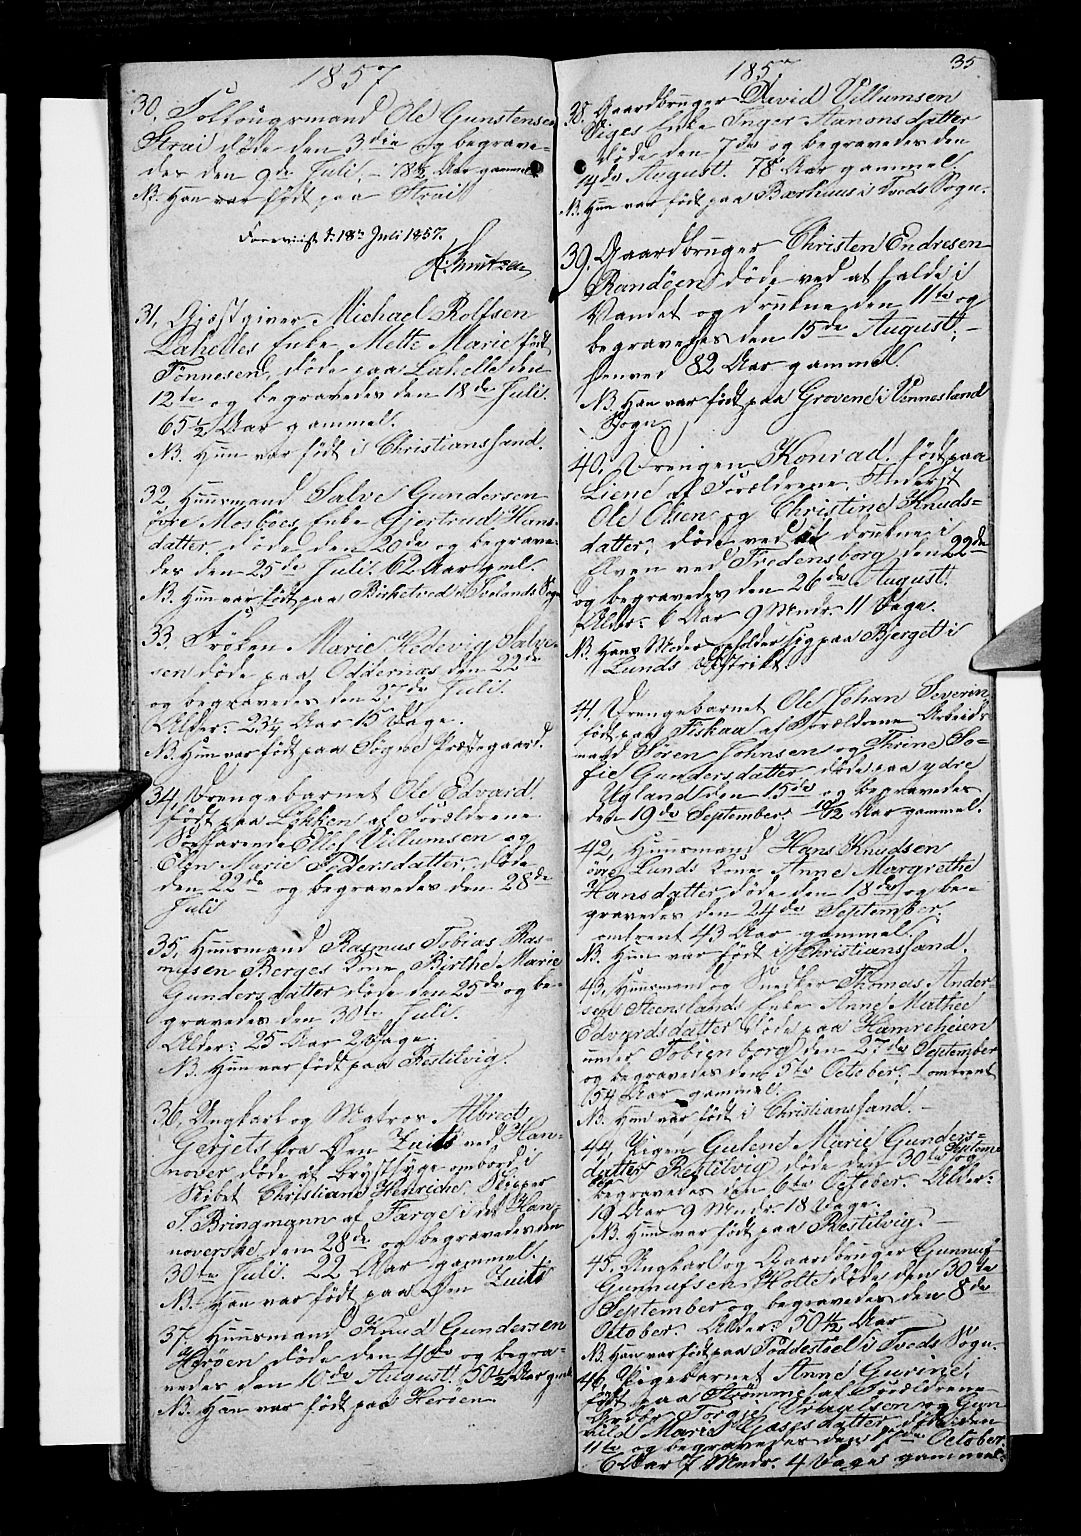 1857
30, Foltougsmand Ole Gunstensen
Strai døde den 3die og begrave-
des den 9de Juli, - 18½ Aar gammel
NB. Han var født paa Strai
Foreviist d: 18de Juli 1857.
31, Gjæstgiver Michael Rolfsen
Lahelles Enke Mette Marie født
Tønnesen, døde paa Lahelle den
12te og begravedes den 18de Juli.
65½ Aar gammel.
NB. Hun var født i Christianssand.
32, Huusmand Salve Gundersen
øvre Mosbøes Enke Gjertrud Hans-
datter, døde den 20de og begrave-
des den 25de Juli. 62 Aar gml.
NB. Hun var født paa Birketved i Tveids Sogn
33, Frøken Marie Hedevig Salve-
sen døde paa Oddernæs den 22de
og begravedes den 27de Juli.
Alder: 23¼ Aar 15 Dage.
NB. Hun var født paa Søgne Præstegaard.
34, Drengebarnet Ole Edvard
født paa Løkken af Forældrene
Søefarende Ellef Villumsen og
Elen Marie Pedersdatter, døde
den 22de og begravedes den 28de
Juli
35, Huusmand Rasmus Tobias Ras-
musen Berges Kone Birthe Marie
Gundersdatter døde den 25de og be-
gravedes den 30te Juli.
Alder: 25 Aar 2 Dage.
NB. Hun var født paa Restilvig.
36, Ungkarl og Matros Albredt
Gerjets fra Øen Zuist ved Han-
nover døde af Brystsyge ombord i
Skibet Christiane Henriche, Skipper
S. Bringmann af Farge i det Han-
noverske den 28de og begravedes den
30te Juli. 22 Aar gammel.
NB. Han var født paa Øen Zuist
37, Huusmand Knud Gundersen
Herøen døde den 4de og begra-
vedes den 10de August. 50½ Aar gml
NB. Han var født paa Herøen.
1857
35
38. Gaardbruger David Villumsen
Viges Enke Inger Aanonsdatter
døde den 7de og begravedes den
14de August. 78 Aar gammel
NB. Hun var født paa Bærhuus i Tveds Sogn.
39, Gaardbruger Christen Endresen
Randøen døde ved at falde i
Vandet og drukne den 11te og
begravedes den 15de August, -
henved 82 Aar gammel.
NB. Han var født paa Grovene i Vennesland
Sogn.
40. Drengen Konrad, født paa
Liene af Forældrene Anderst
Ole Olsen og Christine Knuds-
datter, døde ved at drukne i
Elven ved Fredensborg den 22de
og begravedes den 26de August.
Alder: 6 Aar 9 Mndr. 11 Dage.
NB. Hans Moder opholder sig paa Bjerget i
Lunds District.
41, Drengebarnet Ole Johan Severin
født paa Fiskaa af Forældrene Arbeids-
mand Søren Johnsen og Thrine So-
fie Gundersdatter, døde paa ydre
Ugland den 15de og begravedes
den 19de September. 10/12 Aar gammel.
42, Huusmand Hans Knudsen
øvre Lunds Kone Anne Margrethe
Hansdatter døde den 18de og be-
gravedes den 24de September.
omtrent 43 Aar gammel.
NB. Hun var født i Christianssand.
43, Huusmand og Snedker Thomas Ander-
sen Steenslands Enke Anne Mathea
Edvardsdatter døde paa Hamreheien
under Tobienborg den 27de September
og begravedes den 5te October. - omtrent
54 Aar gammel.
NB. Hun var født i Christianssand. -
44, Pigen Gulene Marie Gunders-
datter Restilvig døde den 30te Septemb. og
begravedes den 6te October. Alder:
19 Aar 9 Mndr. 18 Dage.
NB. Hun var født paa Restilvig. -
45. Ungkarl og Gaardbruger Gunnuf
Gunnufsen Holte døde den 30te
September og begravedes den 8de
October. Alder: 50 4/12 Aar
NB. Han var født paa Foddesteel i Tveds Sogn.
46, Pigebarnet Anne Gurine,
født paa Strømme af Forældrene
Torgis Traalsen og Gun
vild Marie Aasesdatter døde den
11te og begravedes den October.
6 Aar 7 Mndr. 4 Dage gammel.